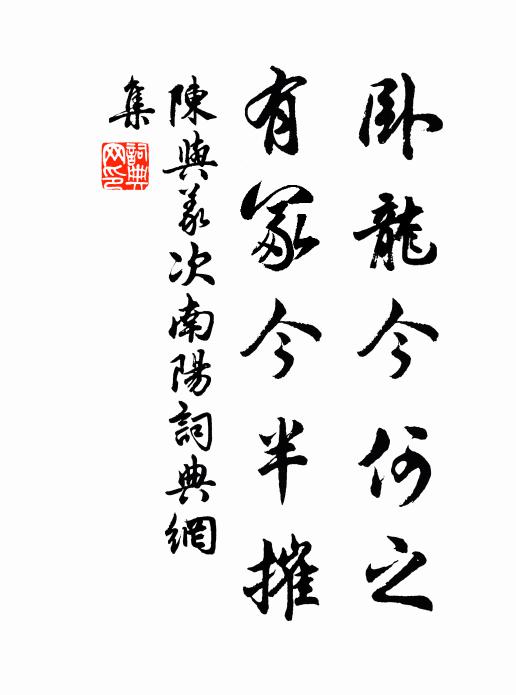 卧龍今何之
有冢今半摧
陳與義次南陽詞典網
集
詞典網印